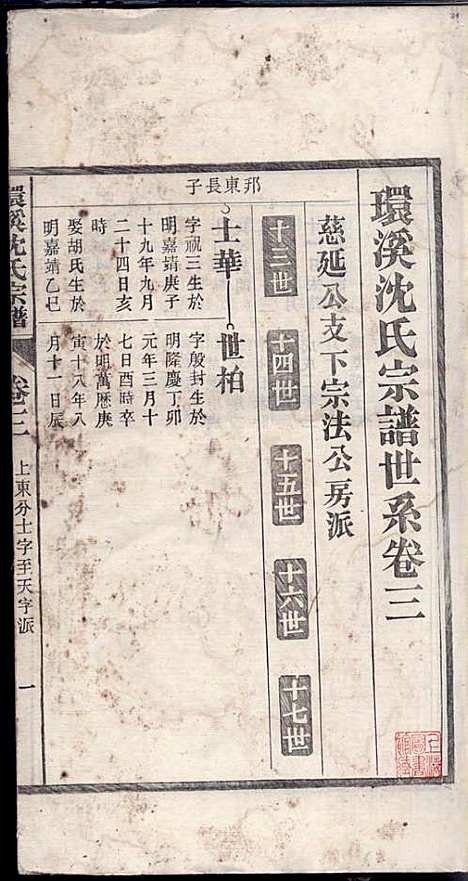 環溪沈氏宗譜世系卷三
慈延公支下宗法公房派
十三世
十四世
十五世
十六世
十七世
邦東長子
士華
世柏
字視三生於
明嘉靖庚子
十九年九月
二十四日亥
時
娶胡氏生於
明嘉靖乙巳
字殷封生於
明隆慶丁卯
元年三月十
七日酉時卒
於明萬曆庚
寅十八年八
月十一日辰
環溪沈氏宗譜
卷三
上東分士字至天字派
一